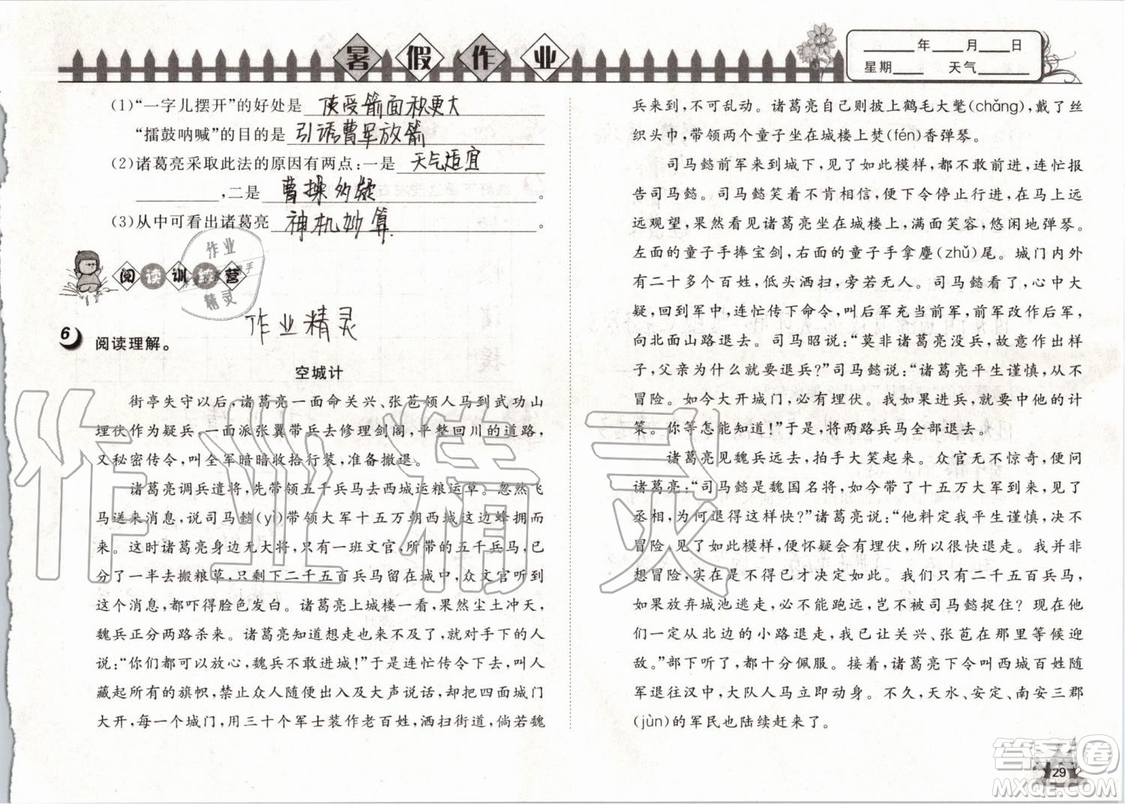 暑假作业
____年__月__日
星期____ 天气____
(1)“一字儿摆开”的好处是 使受箭面积更大
“擂鼓呐喊”的目的是 引诱曹军放箭
(2)诸葛亮采取此法的原因有两点:一是 天气适宜
,二是 曹操多疑 。
(3)从中可看出诸葛亮 神机妙算 。
作业
精灵
阅读训练营
作业精灵
6 阅读理解。
空城计
街亭失守以后,诸葛亮一面命关兴、张苞领人马到武功山
埋伏作为疑兵,一面派张翼带兵去修理剑阁,平整回川的道路,
又秘密传令,叫全军暗暗收拾行装,准备撤退。
诸葛亮调兵遣将,先带领五千兵马去西城运粮草。忽然飞
马送来消息,说司马懿(yì)带领大军十五万朝西城这边蜂拥而
来。这时诸葛亮身边无大将,只有一班文官,所带的五千兵马,已经
分了一半去搬粮草,只剩下二千五百兵马在城里,众文官听到
这个消息,都吓得脸色发白。诸葛亮上城楼一看,果然尘土冲天,
魏兵正分两路杀来。诸葛亮知道想走走不掉了,就对手下的人
说:“你们都可以放心,魏兵不敢进城!”于是连忙传令,放倒城上
所有的旗帜,禁止众人随便出入及大声说话,却把四面城门
大开,每一个城门,用三十个军士装作老百姓,洒扫街道,倘若魏
兵来到,不可乱动。诸葛亮自己则披上鹤毛大氅(chǎng),戴了丝
织头巾,带领两个童子坐在城楼上焚(fén)香弹琴。
司马懿前军来到城下,见了如此模样,都不敢前进,连忙报
告司马懿。司马懿笑着不肯相信,便下令停止行进,自己在马上远
远观望,果然看见诸葛亮坐在城楼上,满面笑容,悠闲地弹琴。
左面的童子手捧宝剑,右面的童子手拿麈(zhǔ)尾。城门内外
有二十几个老百姓,低头洒扫,旁若无人。司马懿看了,心中大
疑,回到军中,连忙传下命令,叫后军充当前军,前军改作后军,
向北面山路退去。司马昭说:“莫非诸葛亮没兵,故意作出这样
子,父亲为什么就要退兵?”司马懿说:“诸葛亮平生谨慎,从来不
冒险。如今大开城门,必有埋伏。我如果进兵,就要中了他的计
策。你等怎能知道!”于是,将两路兵马全部退去。
诸葛亮见魏兵远去,拍手大笑起来。众官无不惊奇,便问
诸葛亮:“司马懿是魏国名将,带了十五万大军到了这里,见了
丞相,为何退得这样快?”诸葛亮说:“他料定我平生谨慎,决不
冒险,见了如此模样,便怀疑会有埋伏,所以很快退走。我并非
想冒险,实在是不得已才决定如此。我们只有二千五百兵马,
如果放弃城池逃走,能跑多远,不是要被司马懿捉住?现在他
一定从北边的小路退走,我已命关兴、张苞在那里等候迎
敌。”部下听了,都十分佩服。接着,诸葛亮下令叫西城百姓随
军退往汉中,大队人马立即动身。不久,天水、安定、南安三郡
(jùn)的军民也陆续赶来了。
作业精灵
答案圈
MXQE.COM
29